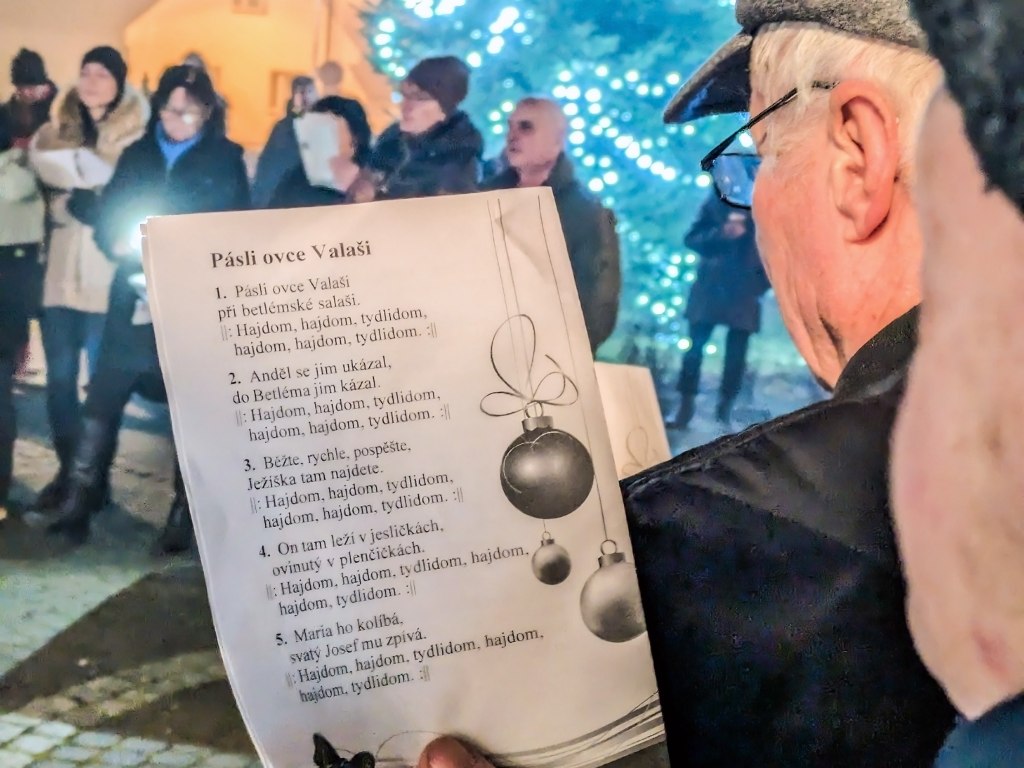 Pásli ovce Valaši
1. Pásli ovce Valaši
při betlémské salaši.
||: Hajdom, hajdom, tydlidom,
hajdom, hajdom, tydlidom. :||
2. Anděl se jim ukázal,
do Betléma jim kázal.
||: Hajdom, hajdom, tydlidom,
hajdom, hajdom, tydlidom. :||
3. Běžte, rychle, pospěšte,
Ježíška tam najdete.
||: Hajdom, hajdom, tydlidom,
hajdom, hajdom, tydlidom. :||
4. On tam leží v jesličkách,
ovinutý v plenčičkách.
||: Hajdom, hajdom, tydlidom, hajdom,
hajdom, tydlidom. :||
5. Maria ho kolíbá,
svatý Josef mu zpívá.
||: Hajdom, hajdom, tydlidom, hajdom,
hajdom, tydlidom. :||